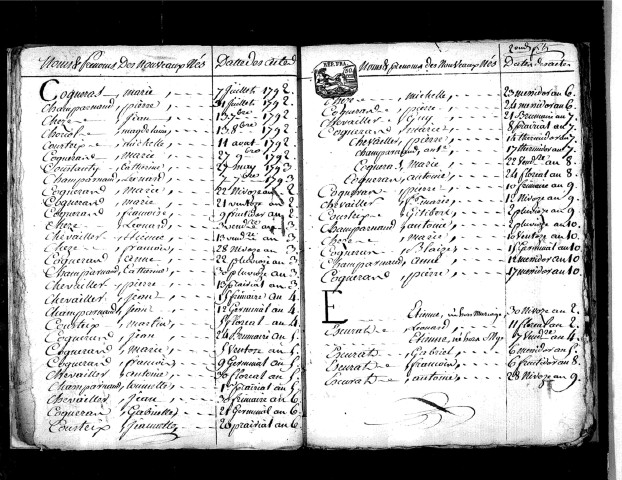 Noms & prenoms Des Nouveaux Nés Dattes des actes
Coqueras marie 7 juillet 1792
Champarnaud pierre juillet 1792
Chese jean 1792
magdelaine 8bre 1792
Courteix michelle 11 aout 1792
Coquerand marie 27 9bre 1792
Constanty Catherine may 1793
Champarnaud Leonard 1793
Coquerand marie 22 Nivose an 2
Coquerand marie 21 ventose an 2
Coquerand françoise 9 fructidor an 2
Chese Léonard vendre an 3
Chevailler etienne 13 vendre an 3
Chese francois 28 Nivose an 3
Coquerand anne 22 pluviose an 3
Champarnaud Catherine 30 pluviose an 3
Chevailler pierre 13 prairial an 3
Chevailler jeanne 1 frimaire an 4
Champarnaud jean 12 Germinal an 4
Courteix martin floreal an 4
Coquerand jean 24 Brumaire an 5
Coquerand marie Ventose an 5
Coquerand pierre 9 Germinal an 5
Chevailler antoine 30 floreal an 5
Champarnaud prairial an 5
Chevailler jean 30 frimaire an 6
Coquerand Gabrielle 21 Germinal an 6
Courteix jeannette 20 prairial an 6
REP. FRA.
Noms & prenoms des Nouveaux Nés Dates des actes
Chese michelle 23 messidor an 6
Coquerand pierre 24 messidor an 6
Chevailler Guy 21 Brumaire an 7
Coquerand marie 8 prairial an 7
Chevailler pierre 14 thermidor an 7
champarnaud ant. 17 thermidor an 7
Coqueras marie 22 vendre an 8
Coquerand antoine 24 floreal an 8
Coquerand pierre 10 frimaire an 9
Chevailler marie 12 Nivose an 9
Courteix 2 pluviose an 9
Champarnaud antoine 2 pluviose an 10
Chese marie ventose an 10
Coquerand Blaise Germinal an 10
Champarnaud anne 12 messidor an 10
Coquerand pierre 17 messidor an 10
E
Etienne, né hors Mariage 30 Nivose an 2
Escurat Leonard 11 floreal an 2
Etienne né hors Mge 7 vendre an 4
Escurat Gabriel 6 messidor an 5
Escurat françois 6 fructidor an 8
Escurat antoine 28 Nivose an 9